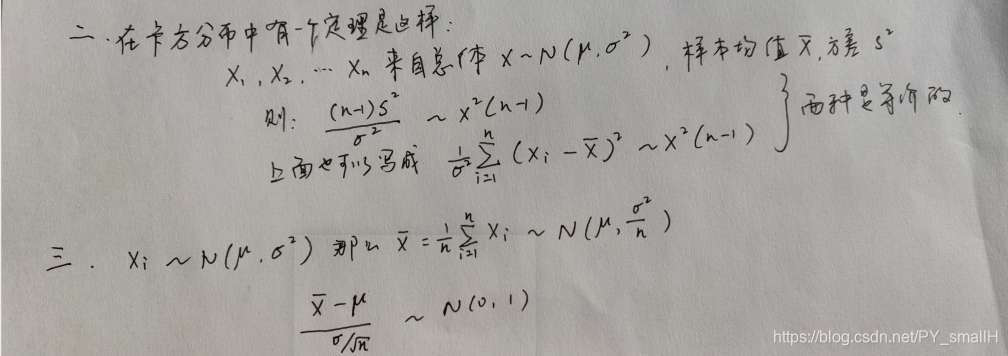 二.在卡方分布中有一个定理是这样:
X₁, X₂, … Xₙ 来自总体 X~N(μ, σ²), 样本均值 x̄, 方差 s²
则: (n-1)s²/σ² ~ X²(n-1)
上面也可以写成 1/σ² ∑ᵢ₌₁ⁿ (Xᵢ - X̄)² ~ X²(n-1) } 两种是等价的.
三. Xᵢ ~ N(μ, σ²) 那么 X̄ = 1/n ∑ᵢ₌₁ⁿ Xᵢ ~ N(μ, σ²/n)
(X̄ - μ)/(σ/√n) ~ N(0, 1)
https://blog.csdn.net/PY_smallH